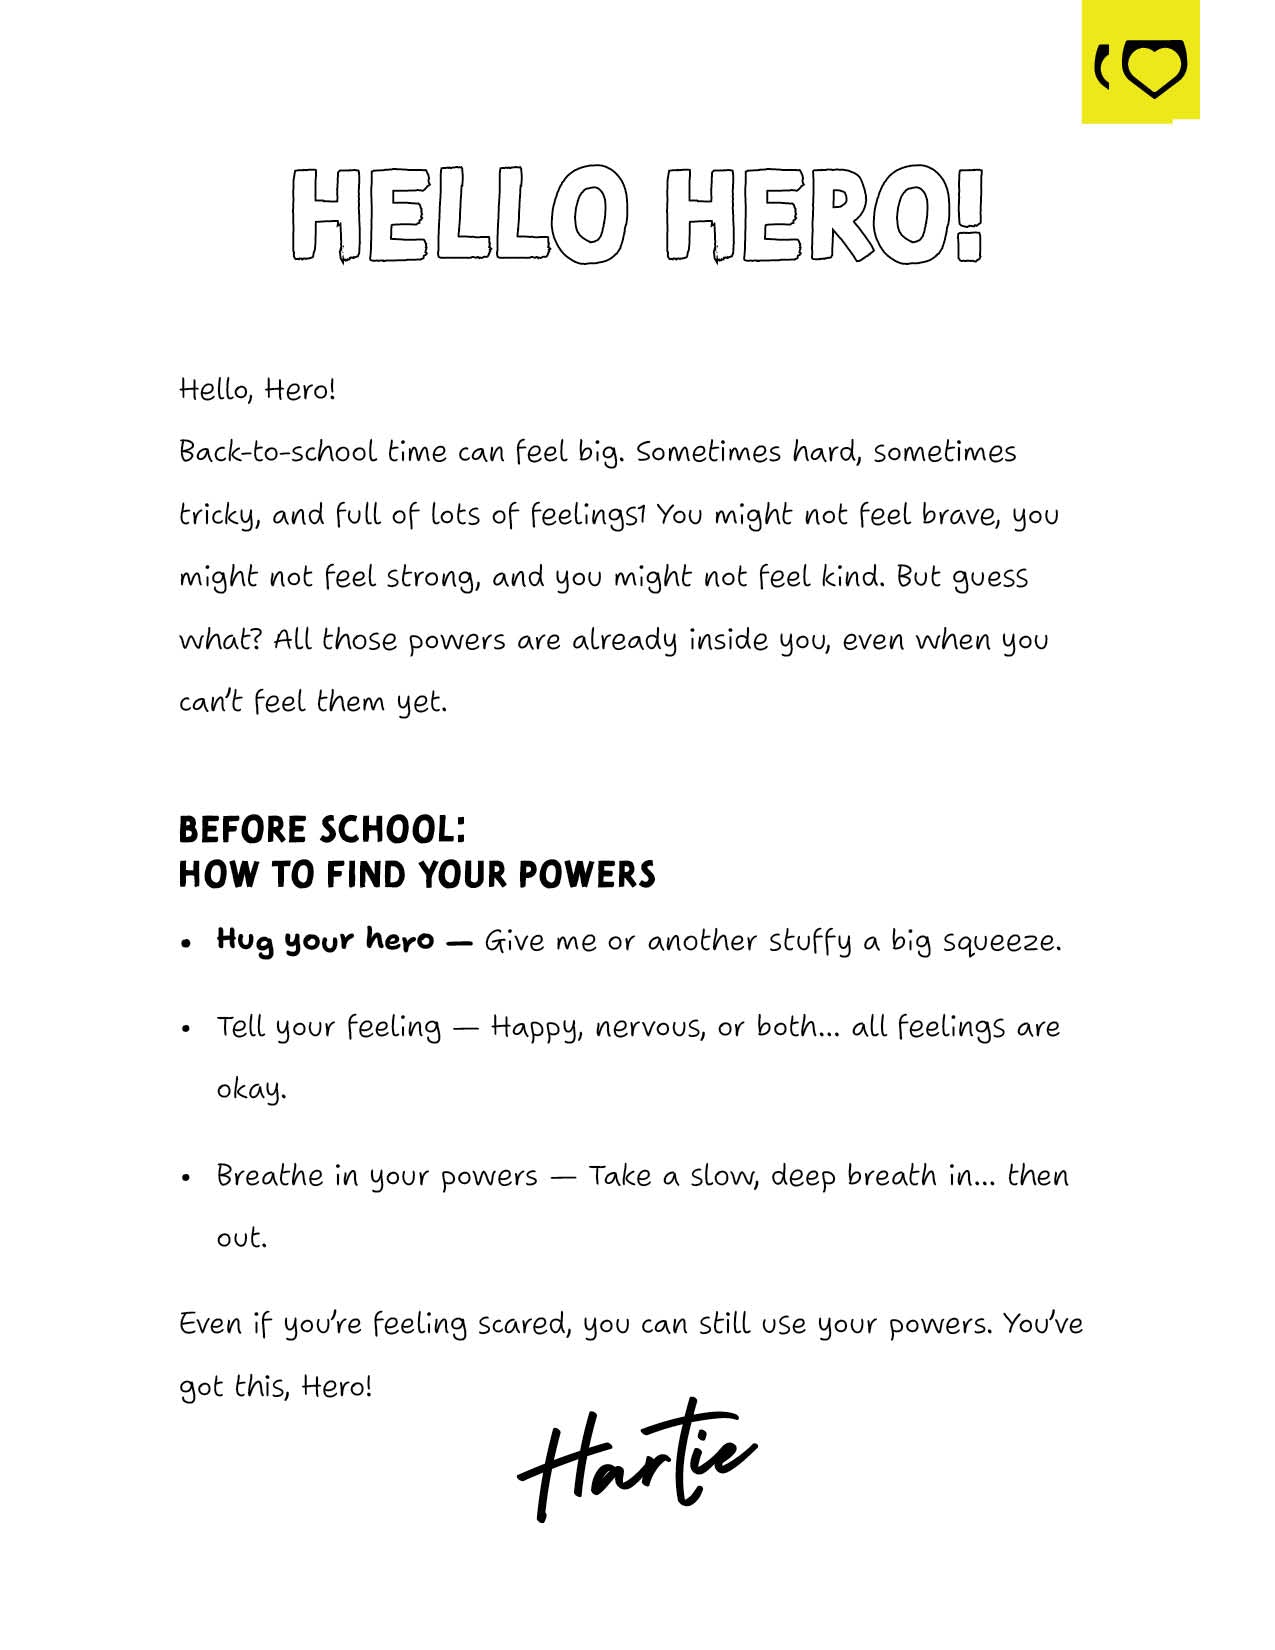 HELLO HERO!
Hello, Hero!
Back-to-school time can feel big. Sometimes hard, sometimes
tricky, and full of lots of feelings1 You might not feel brave, you
might not feel strong, and you might not feel kind. But guess
what? All those powers are already inside you, even when you
can't feel them yet.
BEFORE SCHOOL:
HOW TO FIND YOUR POWERS
• Hug your hero — Give me or another stuffy a big squeeze.
• Tell your feeling — Happy, nervous, or both... all feelings are
okay.
• Breathe in your powers — Take a slow, deep breath in... then
out.
Even if you're feeling scared, you can still use your powers. You've
got this, Hero!
Hartie